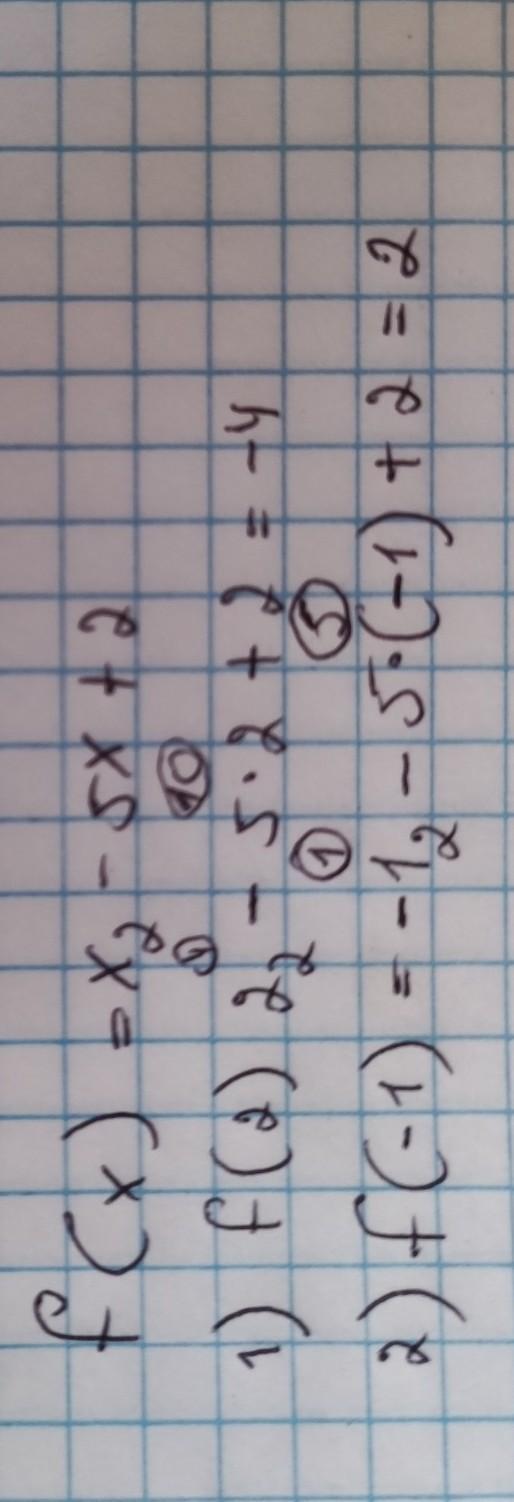 f(x) = x₂ - 5x + 2
⑩
1) f(2) 2₂ - 5·2 + 2 = -4
① ⑤
2) f(-1) = -1₂ - 5·(-1) + 2 = 2